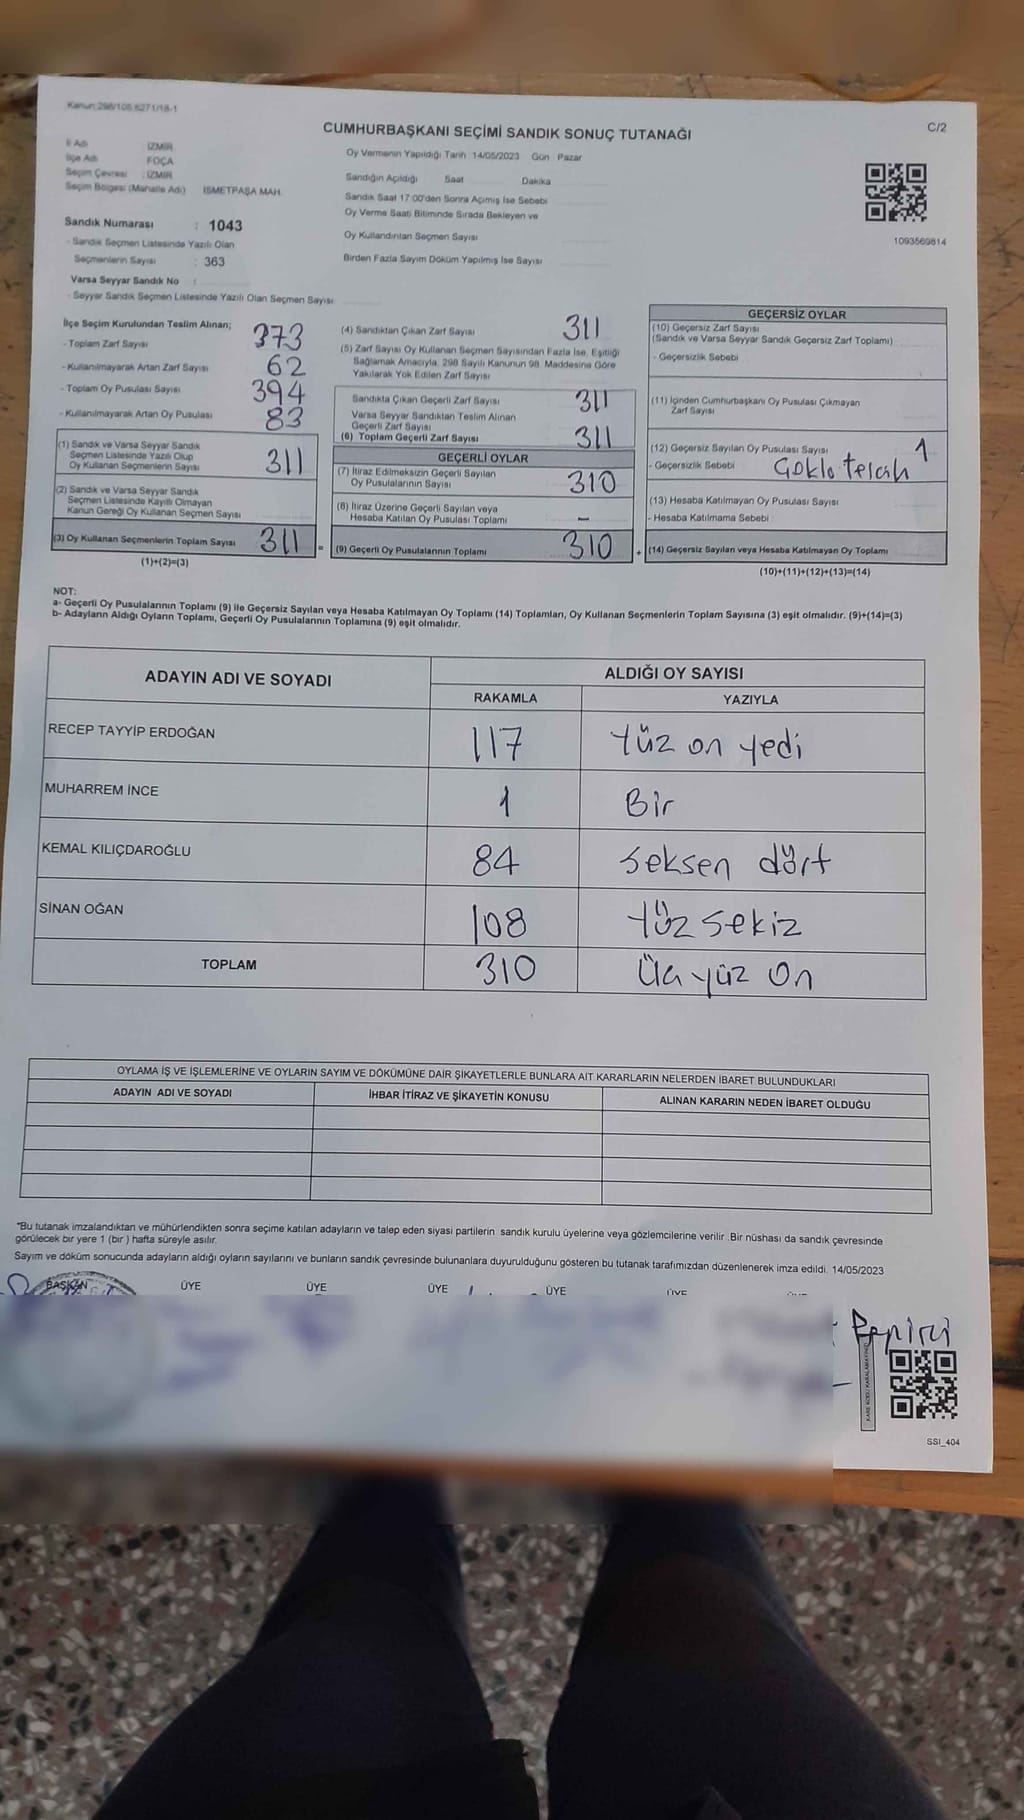 Kanun:298/105.6271/18-1
C/2
CUMHURBAŞKANI SEÇİMİ SANDIK SONUÇ TUTANAĞI
İl Adı : İZMİR
İlçe Adı : FOÇA
Seçim Çevresi : İZMİR
Seçim Bölgesi (Mahalle Adı) İSMETPAŞA MAH.
Sandık Numarası : 1043
- Sandık Seçmen Listesinde Yazılı Olan
Seçmenlerin Sayısı : 363
Varsa Seyyar Sandık No :
- Seyyar Sandık Seçmen Listesinde Yazılı Olan Seçmen Sayısı
Oy Vermenin Yapıldığı Tarih 14/05/2023 Gün Pazar
Sandığın Açıldığı Saat Dakika
Sandık Saat 17:00'den Sonra Açımış İse Sebebi
Oy Verme Saati Bitiminde Sırada Bekleyen ve
Oy Kullandırılan Seçmen Sayısı
Birden Fazla Sayım Döküm Yapılmış İse Sayısı
1093569814
İlçe Seçim Kurulundan Teslim Alınan;
- Toplam Zarf Sayısı 373
- Kullanılmayarak Artan Zarf Sayısı 62
- Toplam Oy Pusulası Sayısı 394
- Kullanılmayarak Artan Oy Pusulası 83
(1) Sandık ve Varsa Seyyar Sandık
Seçmen Listesinde Yazılı Olup
Oy Kullanan Seçmenlerin Sayısı 311
(2) Sandık ve Varsa Seyyar Sandık
Seçmen Listesinde Kayıtlı Olmayan
Kanun Gereği Oy Kullanan Seçmen Sayısı
(3) Oy Kullanan Seçmenlerin Toplam Sayısı 311 =
(1)+(2)=(3)
(4) Sandıktan Çıkan Zarf Sayısı 311
(5) Zarf Sayısı Oy Kullanan Seçmen Sayısından Fazla İse, Eşitliği
Sağlamak Amacıyla, 298 Sayılı Kanunun 98. Maddesine Göre
Yakılarak Yok Edilen Zarf Sayısı
Sandıkta Çıkan Geçerli Zarf Sayısı 311
Varsa Seyyar Sandıktan Teslim Alınan
Geçerli Zarf Sayısı
(6) Toplam Geçerli Zarf Sayısı 311
GEÇERLİ OYLAR
(7) İtiraz Edilmeksizin Geçerli Sayılan
Oy Pusulalarının Sayısı 310
(8) İtiraz Üzerine Geçerli Sayılan veya
Hesaba Katılan Oy Pusulası Toplamı -
(9) Geçerli Oy Pusulalarının Toplamı 310 +
GEÇERSİZ OYLAR
(10) Geçersiz Zarf Sayısı
(Sandık ve Varsa Seyyar Sandık Geçersiz Zarf Toplamı)
- Geçersizlik Sebebi
(11) İçinden Cumhurbaşkanı Oy Pusulası Çıkmayan
Zarf Sayısı
(12) Geçersiz Sayılan Oy Pusulası Sayısı 1
- Geçersizlik Sebebi
(13) Hesaba Katılmayan Oy Pusulası Sayısı
- Hesaba Katılmama Sebebi
(14) Geçersiz Sayılan veya Hesaba Katılmayan Oy Toplamı
(10)+(11)+(12)+(13)=(14)
NOT:
a- Geçerli Oy Pusulalarının Toplamı (9) ile Geçersiz Sayılan veya Hesaba Katılmayan Oy Toplamı (14) Toplamları, Oy Kullanan Seçmenlerin Toplam Sayısına (3) eşit olmalıdır. (9)+(14)=(3)
b- Adayların Aldığı Oyların Toplamı, Geçerli Oy Pusulalarının Toplamına (9) eşit olmalıdır.
ADAYIN ADI VE SOYADI ALDIĞI OY SAYISI
RAKAMLA YAZIYLA
RECEP TAYYİP ERDOĞAN 117 Yüz on yedi
MUHARREM İNCE 1 Bir
KEMAL KILIÇDAROĞLU 84 Seksen dört
SİNAN OĞAN 108 Yüz sekiz
TOPLAM 310 Üç yüz On
OYLAMA İŞ VE İŞLEMLERİNE VE OYLARIN SAYIM VE DÖKÜMÜNE DAİR ŞİKAYETLERLE BUNLARA AİT KARARLARIN NELERDEN İBARET BULUNDUKLARI
ADAYIN ADI VE SOYADI İHBAR İTİRAZ VE ŞİKAYETİN KONUSU ALINAN KARARIN NEDEN İBARET OLDUĞU
"Bu tutanak imzalandıktan ve mühürlendikten sonra seçime katılan adayların ve talep eden siyasi partilerin sandık kurulu üyelerine veya gözlemcilerine verilir. Bir nüshası da sandık çevresinde
görülecek bir yere 1 (bir ) hafta süreyle asılır.
Sayım ve döküm sonucunda adayların aldığı oyların sayılarını ve bunların sandık çevresinde bulunanlara duyurulduğunu gösteren bu tutanak tarafımızdan düzenlenerek imza edildi. 14/05/2023
BAŞKAN ÜYE ÜYE ÜYE ÜYE ÜYE
SSI_404